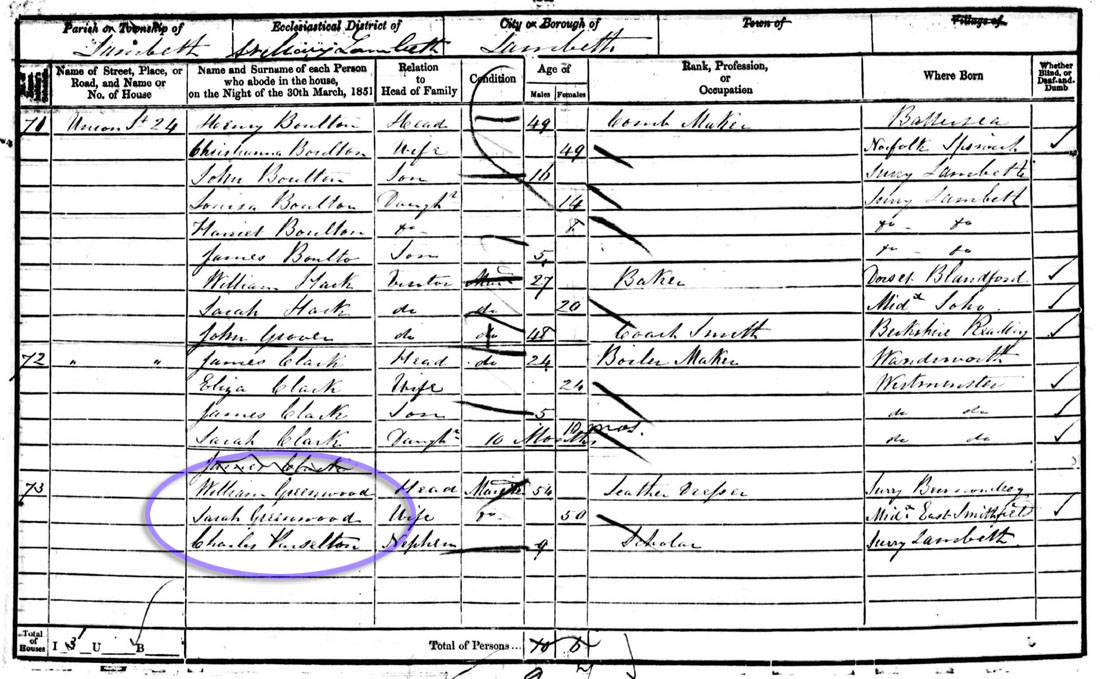 Parish or Township of Ecclesiastical District of City or Borough of Town of Village of
Lambeth St Mary Lambeth Lambeth
Name of Street, Place, or Road, and Name or No. of House Name and Surname of each Person who abode in the house, on the Night of the 30th March, 1851 Relation to Head of Family Condition Age of Males Females Rank, Profession, or Occupation Where Born Whether Blind, or Deaf-and-Dumb
71 Union St 24 Henry Boulton Head 49 Comb Maker Battersea
Christianna Boulton Wife 49 Norfolk Ipswich
John Boulton Son 16 Surry Lambeth
Louisa Boulton Daughr 14 Surry Lambeth
Harriet Boulton do 8 do do
James Boulto Son 5 do do
William Hack Visitor 27 Baker Dorset Blandford
Sarah Hack do do 20 Midx Soho
John Grover do do 48 Coach Smith Berkshire Reading
72 " " James Clark Head do 24 Boiler Maker Wandsworth
Eliza Clark Wife 24 Westminster
James Clark Son 5 do do
Sarah Clark Daughr 10 Months 10 mos. do do
James Clark
73 William Greenwood Head 54 Leather Dresser Surry Bermondsey
Sarah Greenwood Wife do 50 Midx East Smithfield
Charles Nephew 9 Scholar Surry Lambeth
Total of Houses I 3 U B Total of Persons...